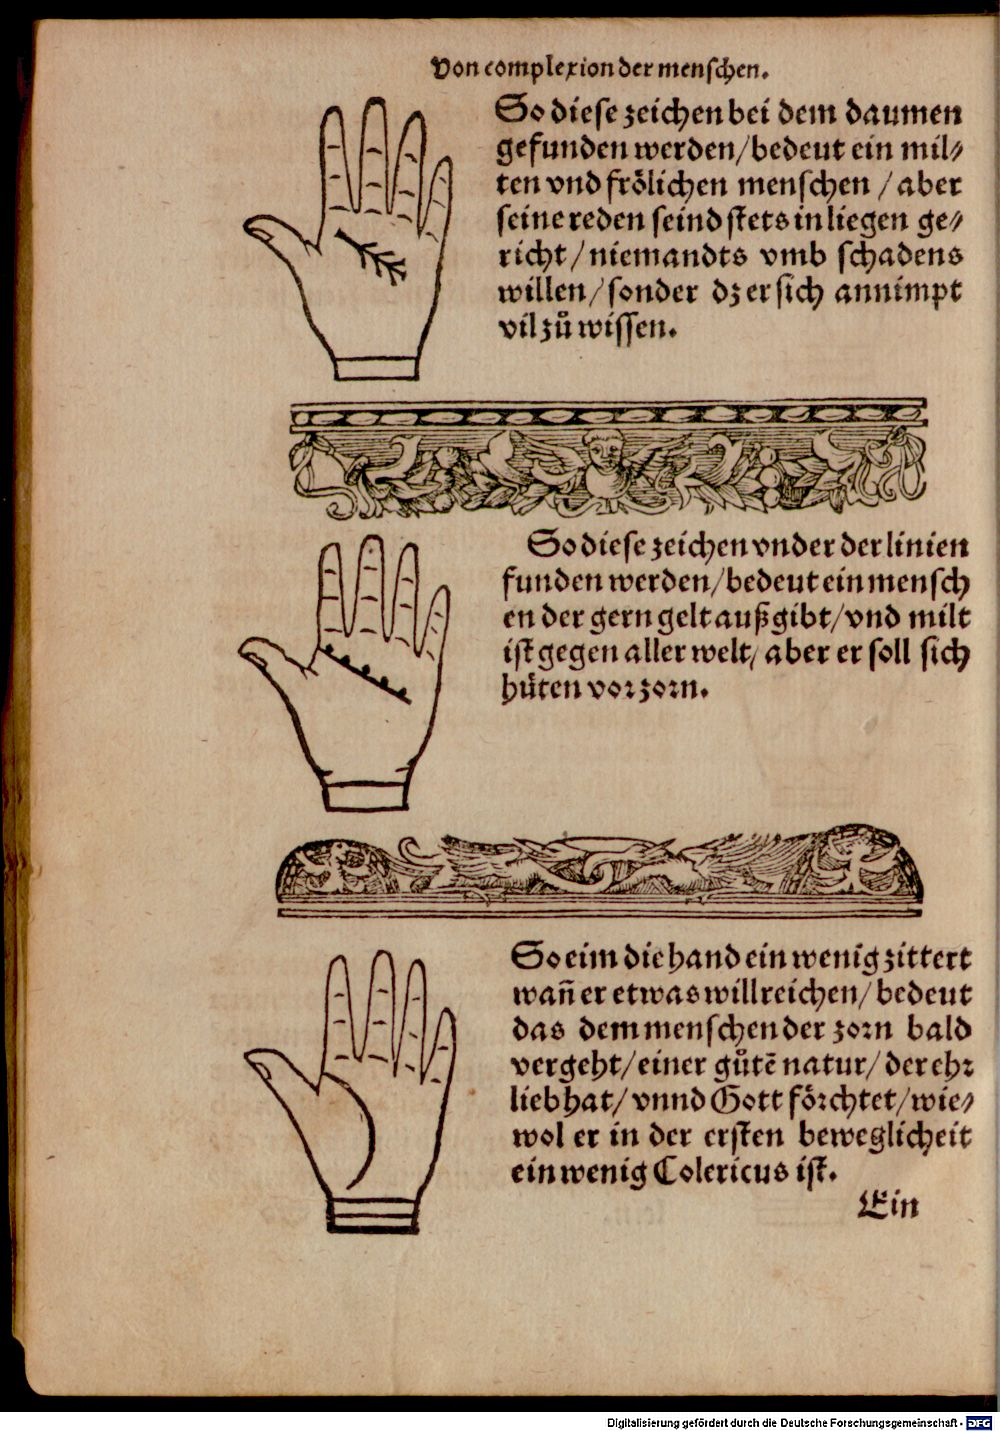 Von complexion der menschen.
So diese zeichen bei dem daumen
gefunden werden/bedeut ein mil⸗
ten vnd frölichen menschen / aber
seine reden seind stets in liegen ge⸗
richt/niemandts vmb schadens
willen/sonder dz er sich annimpt
vil zů wissen.
So diese zeichen vnder der linien
funden werden/bedeut ein mensch
en der gern gelt außgibt/vnd milt
ist gegen aller welt/ aber er soll sich
hüten vor zorn.
So eim die hand ein wenig zittert
wañ er etwas will reichen/bedeut
das dem menschen der zorn bald
vergeht/einer gůtē natur/der ehr
lieb hat/ vnnd Gott förchtet/wie⸗
wol er in der ersten beweglicheit
ein wenig Colericus ist.
Ein
Digitalisierung gefördert durch die Deutsche Forschungsgemeinschaft - DFG